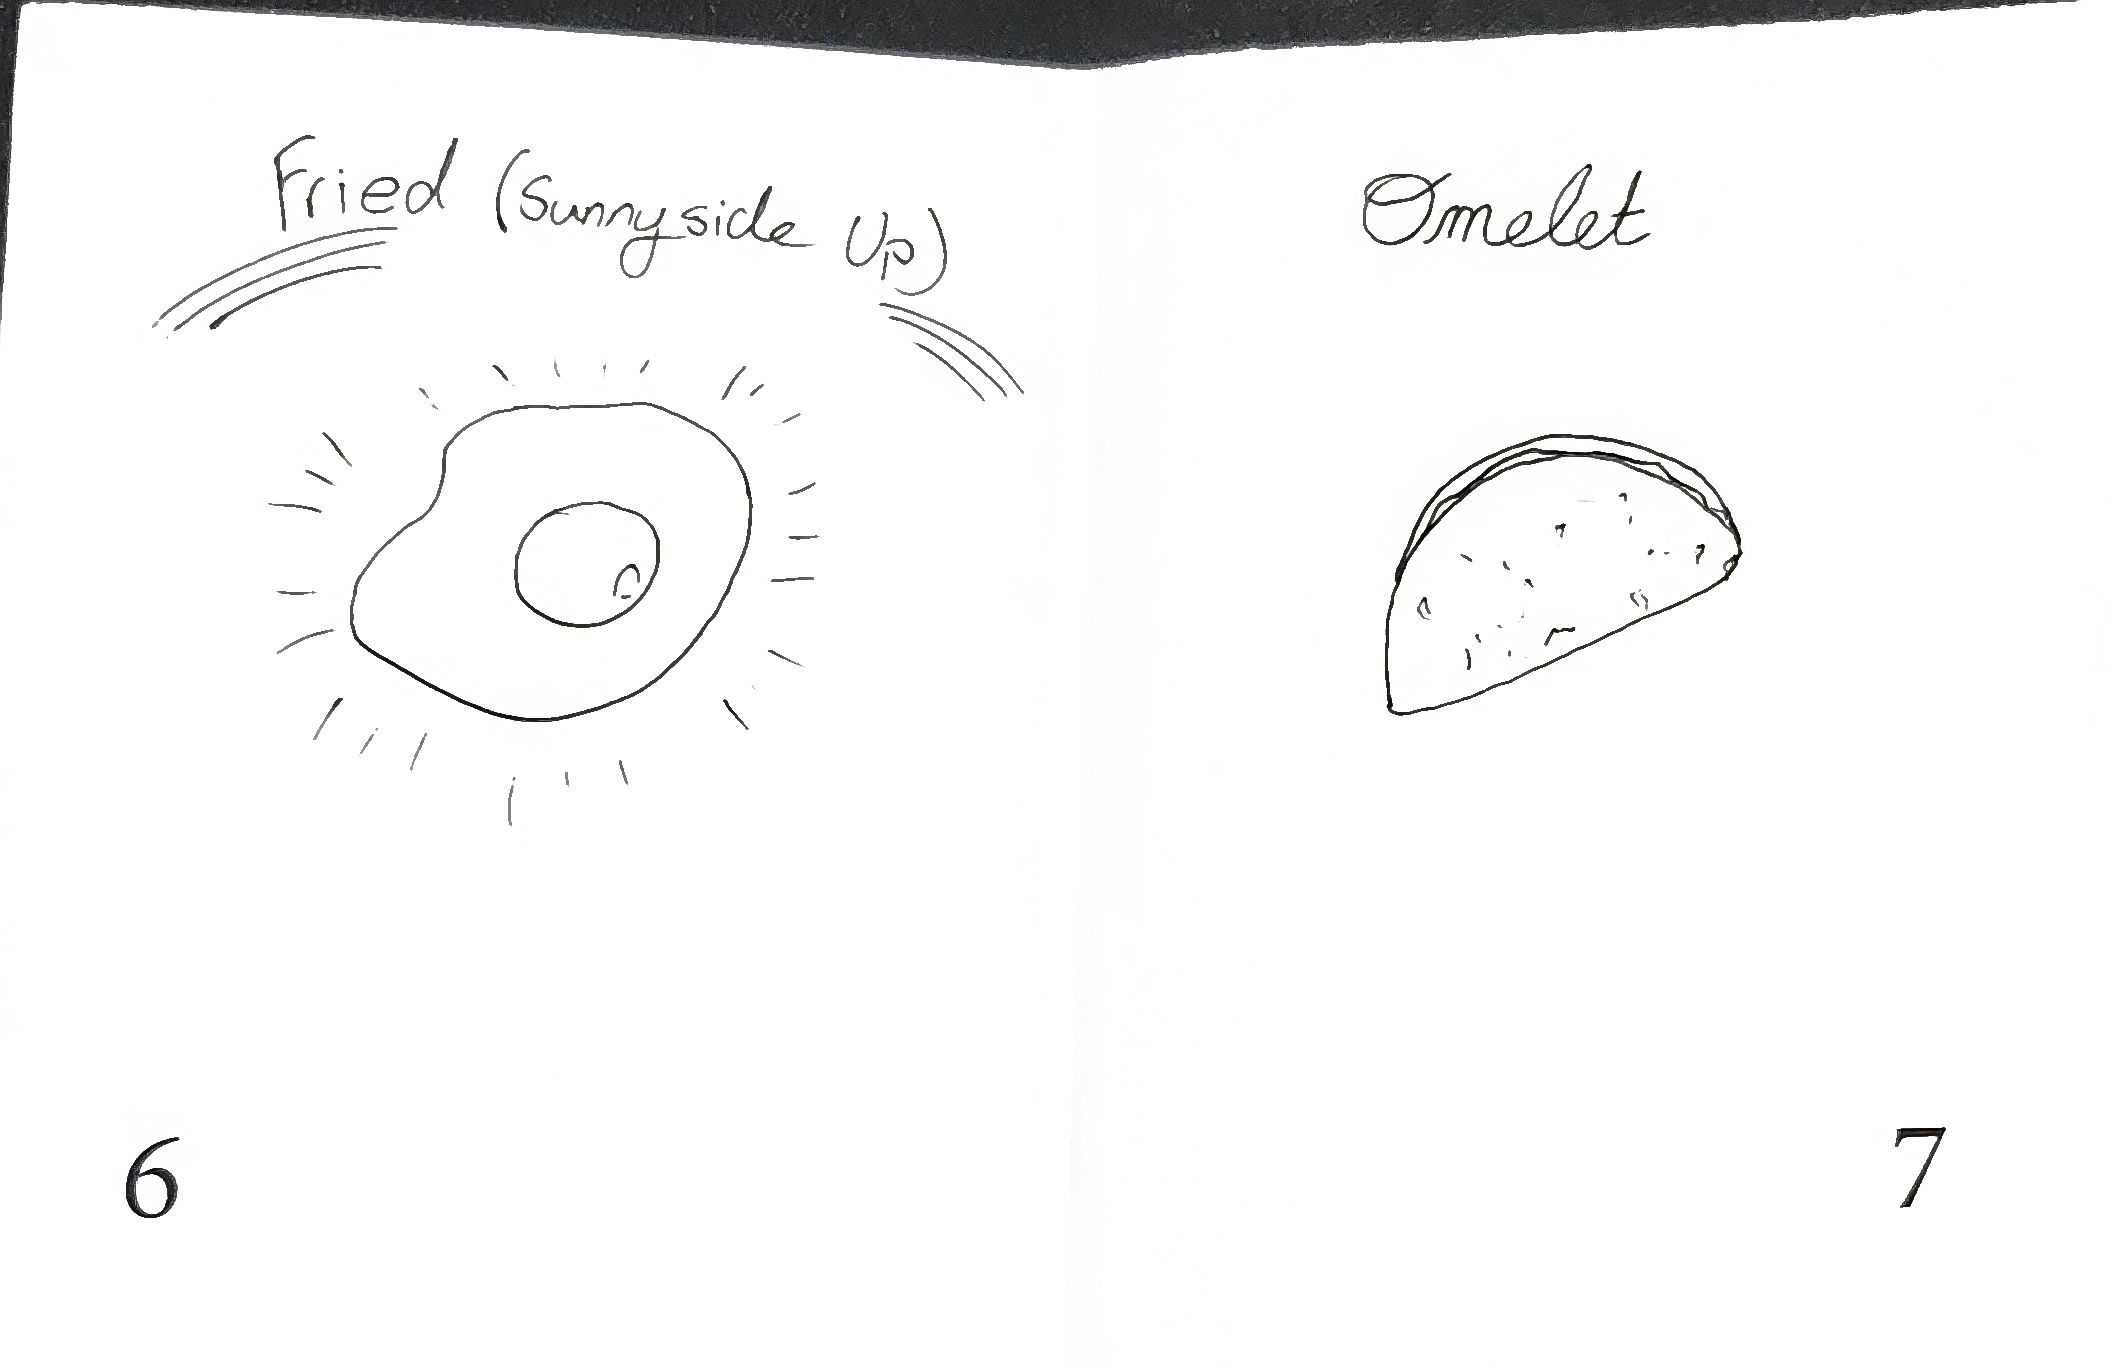 Fried (Sunnyside Up)
Omelet
6
7